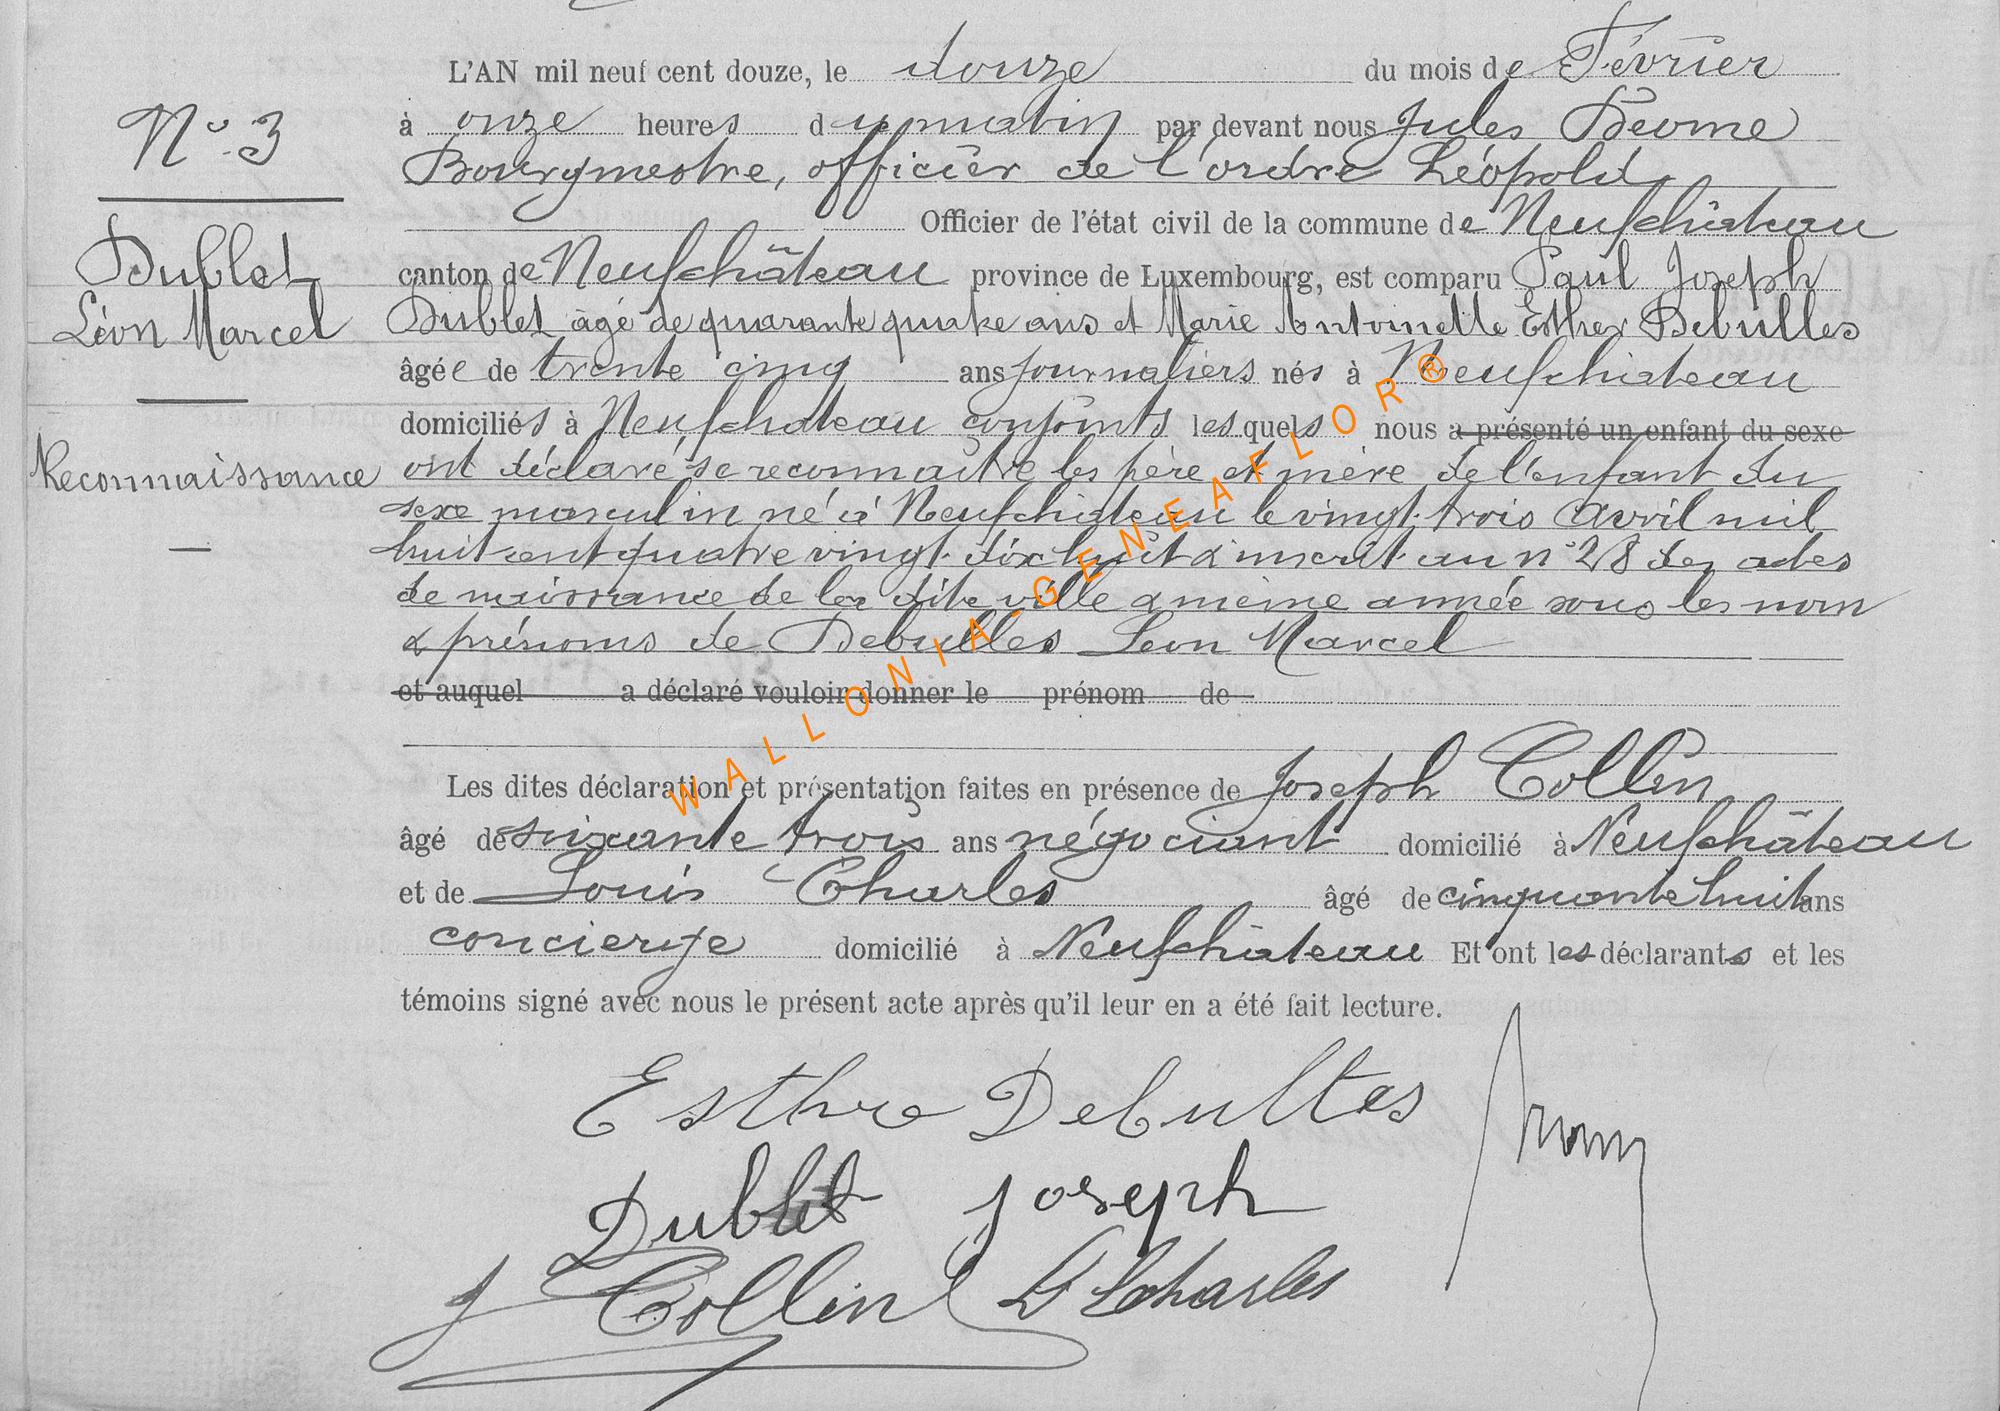 N° 3
Dublet
Léon Marcel
Reconnaissance
L'AN mil neuf cent douze, le douze du mois de Février
à onze heures du matin par devant nous Jules
Bourgmestre, officier de l'ordre Léopold
Officier de l'état civil de la commune de Neufchâteau
canton de Neufchâteau province de Luxembourg, est comparu Paul Joseph
Dublet âgé de quarante quatre ans et Marie Antoinette Esther Debulles
âgée de trente cinq ans journaliers nés à Neufchateau
domiciliés à Neufchateau conjoints lesquels nous a présenté un enfant du sexe
ont déclaré se reconnaître les père et mère de l'enfant du
sexe masculin né à Neufchateau le vingt-trois Avril mil
huit cent quatre vingt-dix huit & inscrit au n° 28 des actes
de naissance de la dite ville & même année sous les nom
& prénoms de Debulles Léon Marcel
et auquel a déclaré vouloir donner le prénom de
Les dites déclaration et présentation faites en présence de Joseph Collin
âgé de soixante trois ans négociant domicilié à Neufchâteau
et de Louis Charles âgé de cinquante huit ans
concierge domicilié à Neufchateau Et ont les déclarants et les
témoins signé avec nous le présent acte après qu'il leur en a été fait lecture.
Esthre Debultes
Dublet Joseph
J Collin L Charles
WALLONIA-GENEAFLOR®